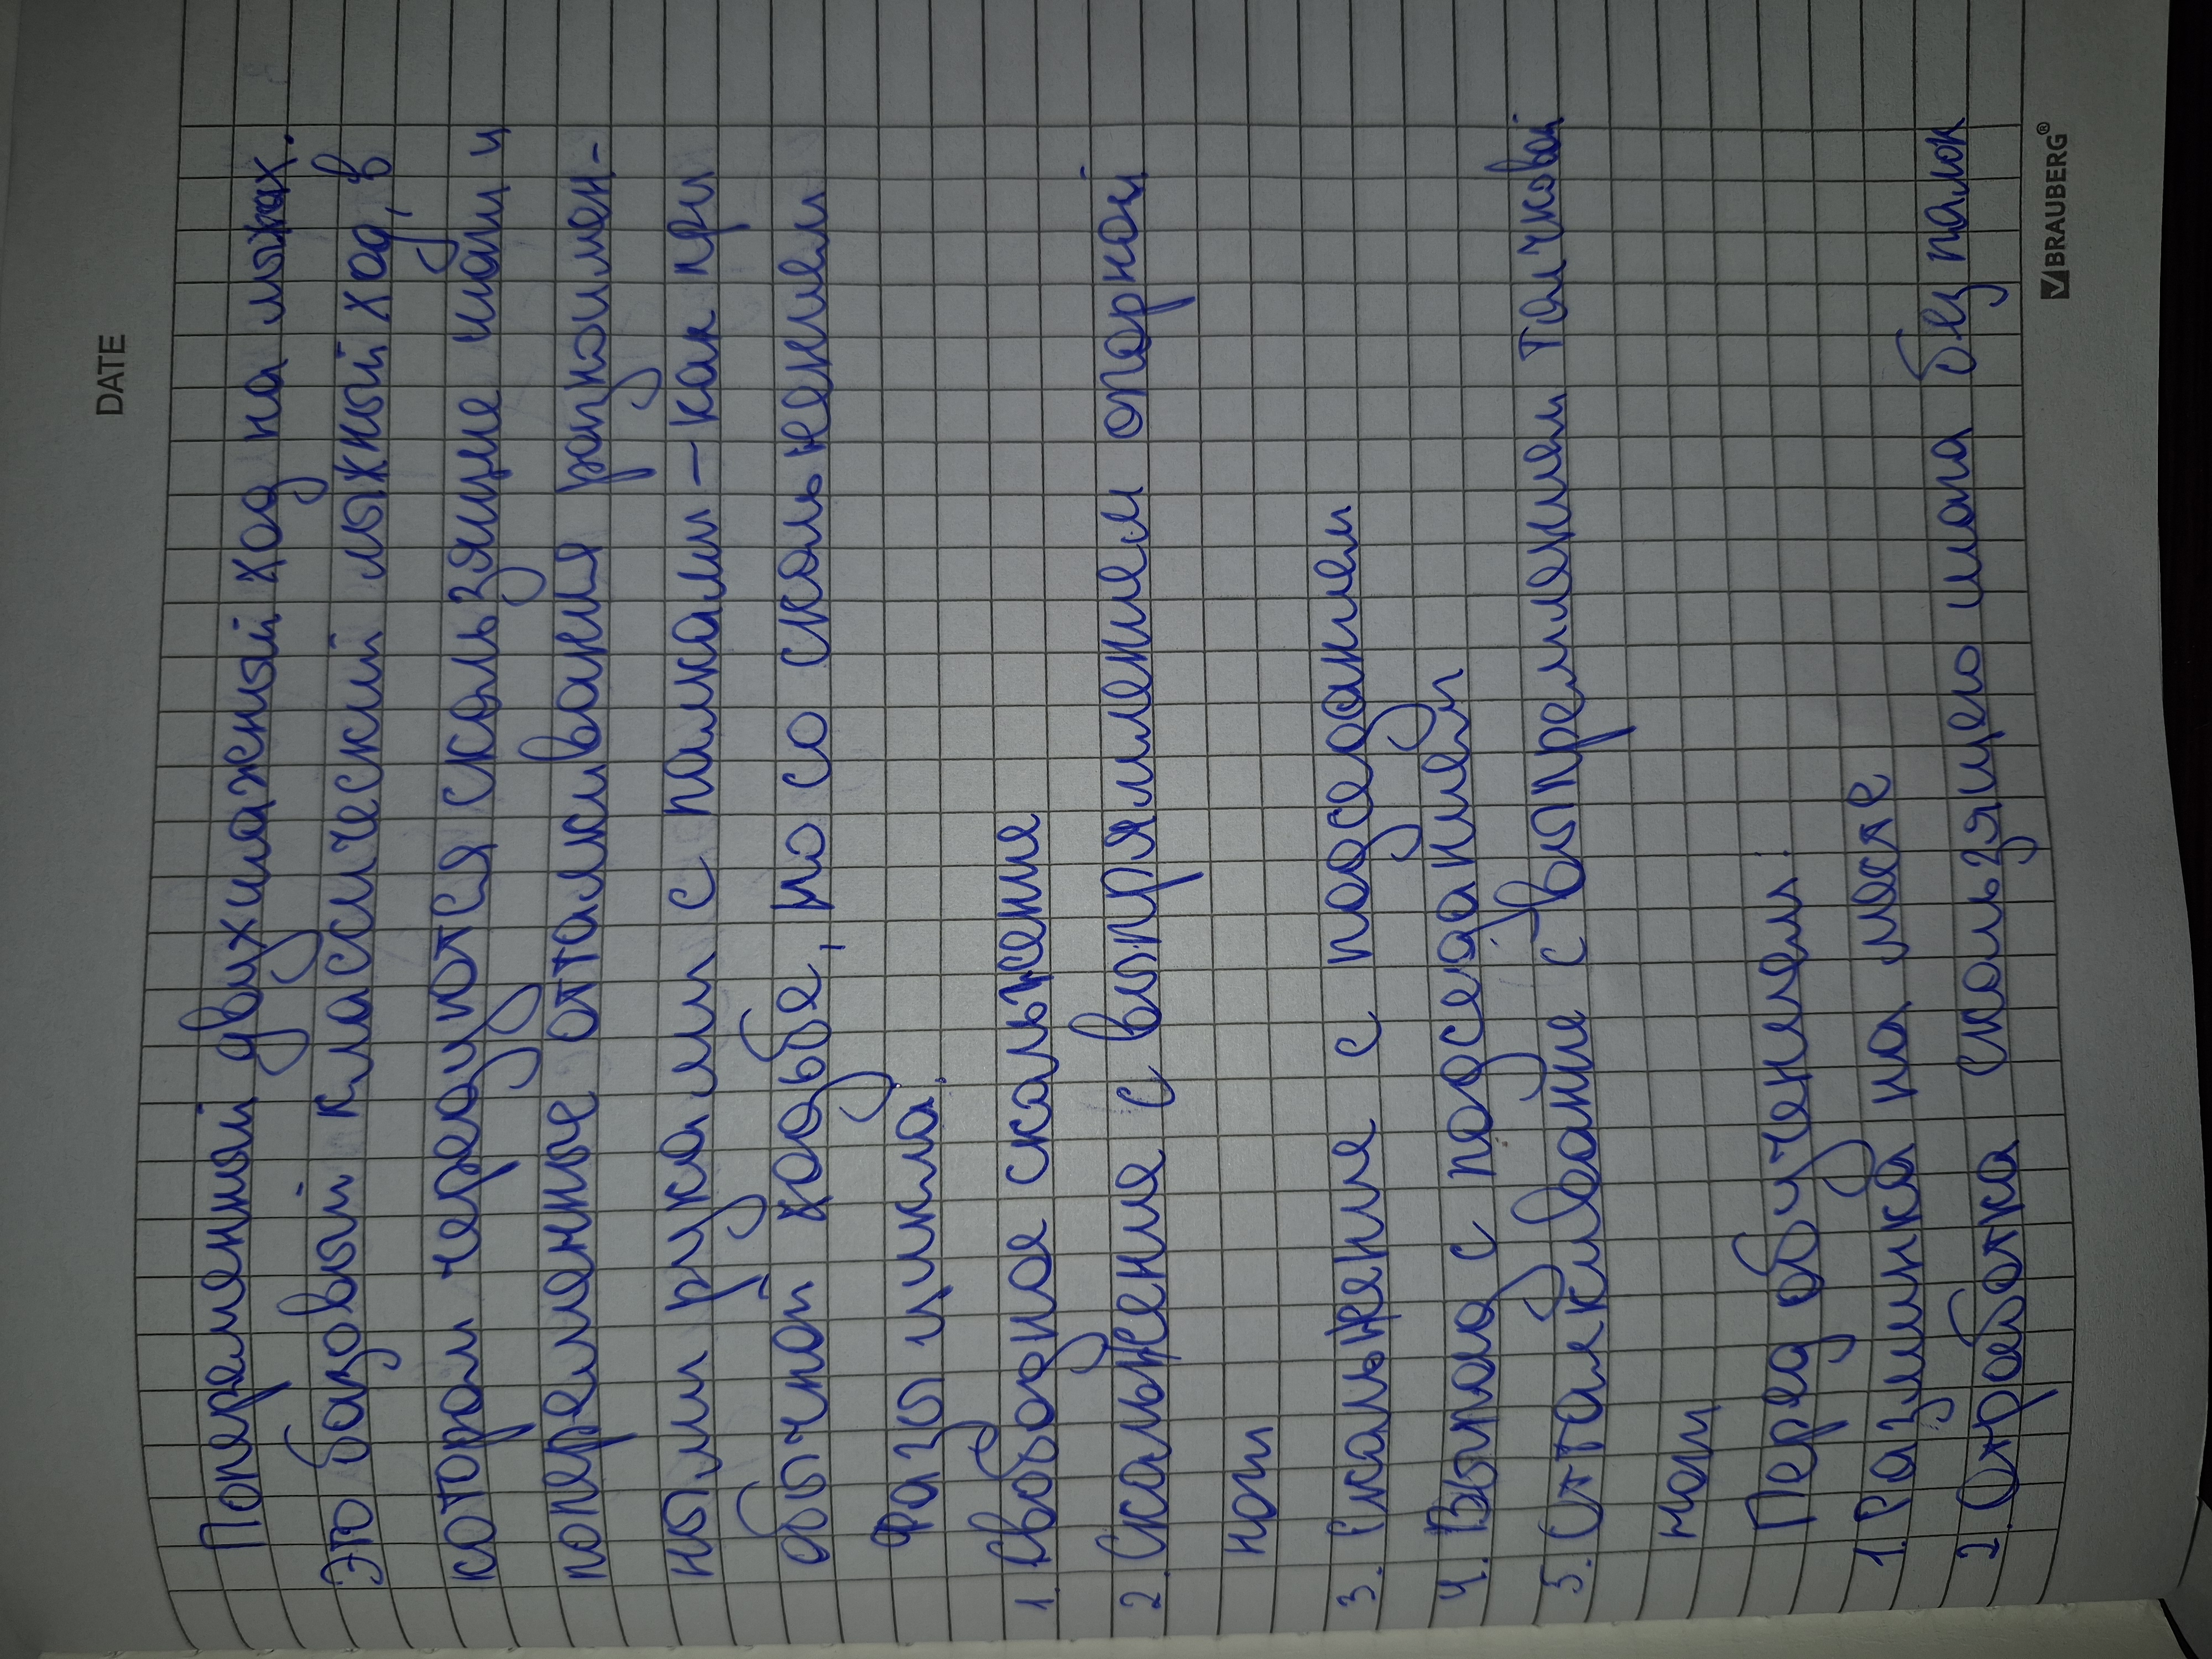 DATE
Попеременный двухшажный ход на лыжах.
Это базовый классический лыжный ход, в
котором чередуются скользящие шаги и
попеременные отталкивания разноимен-
ными руками с палками – как при
обычной ходьбе, но со скольжением
Фазы цикла:
1. Свободное скальжение
2. Скальжение с выпрямлением опорной
ноги
3. Скальжение с подседанием
4. Выпад с подседанием
5. Отталкивание с выпремлением толчковой
ноги
Перед обучением:
1. Разминка на месте
2. Отработка скользящего шага без палок
BRAUBERG®